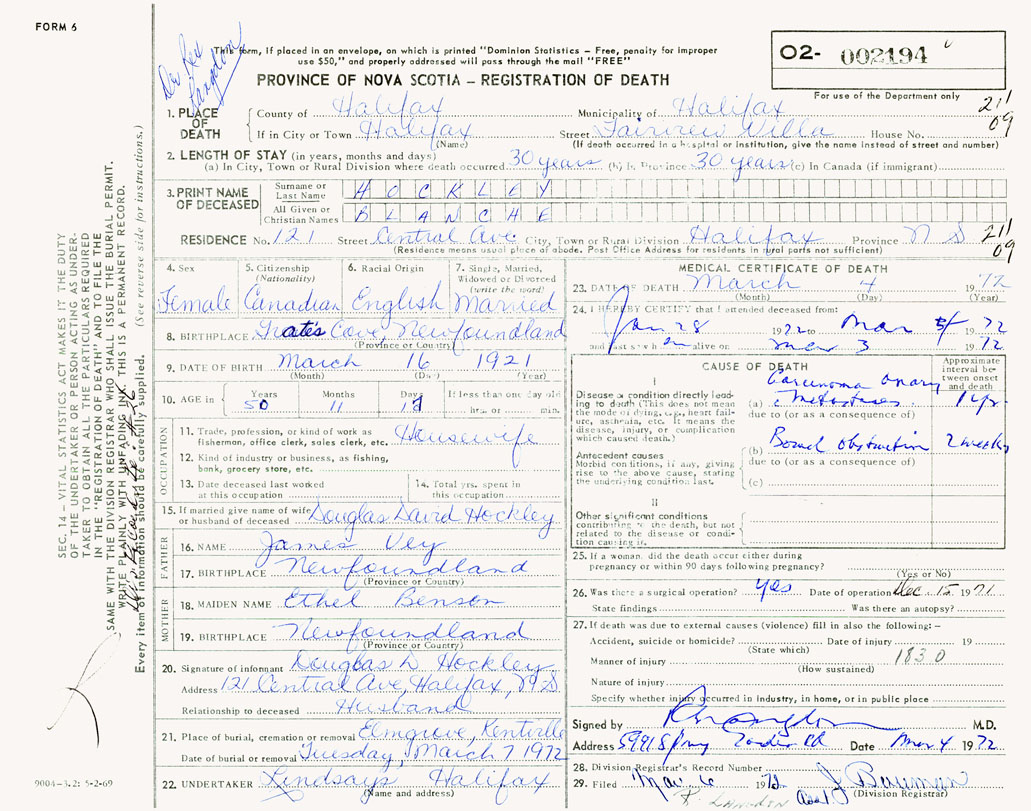 FORM 6
Dr Rex
Langdon
This form, if placed in an envelope, on which is printed "Dominion Statistics – Free, penalty for improper
use $50," and properly addressed will pass through the mail "FREE"
PROVINCE OF NOVA SCOTIA – REGISTRATION OF DEATH
O2- 002194
For use of the Department only
1. PLACE OF DEATH
County of Halifax Municipality of Halifax 211
If in City or Town Halifax Street Fairview Villa House No. 09
(Name) (If death occurred in a hospital or institution, give the name instead of street and number)
2. LENGTH OF STAY (in years, months and days)
(a) In City, Town or Rural Division where death occurred 30 years (b) In Province 30 years (c) In Canada (if immigrant)
3. PRINT NAME OF DECEASED
Surname or Last Name HOCKLEY
All Given or Christian Names BLANCHE
RESIDENCE No. 121 Street Central Ave. City, Town or Rural Division Halifax Province N S 211
(Residence means usual place of abode. Post Office Address for residents in rural parts not sufficient) 09
4. Sex 5. Citizenship (Nationality) 6. Racial Origin 7. Single, Married, Widowed or Divorced (write the word)
Female Canadian English Married
8. BIRTHPLACE Grates Cove, Newfoundland
(Province or Country)
9. DATE OF BIRTH March 16 1921
(Month) (Day) (Year)
10. AGE in Years Months Days If less than one day old
50 11 hrs. or min.
OCCUPATION
11. Trade, profession, or kind of work as
fisherman, office clerk, sales clerk, etc. Housewife
12. Kind of industry or business, as fishing,
bank, grocery store, etc.
13. Date deceased last worked at this occupation
14. Total yrs. spent in this occupation
15. If married give name of wife
or husband of deceased Douglas David Hockley
FATHER
16. NAME James Vey
17. BIRTHPLACE Newfoundland
(Province or Country)
MOTHER
18. MAIDEN NAME Ethel Benson
19. BIRTHPLACE Newfoundland
(Province or Country)
20. Signature of informant Douglas D Hockley
Address 121 Central Ave, Halifax, N.S.
Relationship to deceased Husband
21. Place of burial, cremation or removal Elmgrove, Kentville
Date of burial or removal Tuesday, March 7 1972
22. UNDERTAKER Lindsays Halifax
(Name and address)
MEDICAL CERTIFICATE OF DEATH
23. DATE OF DEATH March 4 1972
(Month) (Day) (Year)
24. I HEREBY CERTIFY that I attended deceased from:
Jan 28 1972 to Mar 1972
and last saw h alive on Mar 3 1972
CAUSE OF DEATH
Approximate interval between onset and death
I
Disease or condition directly leading to death (This does not mean
the mode of dying, e.g., heart failure, asthenia, etc. It means the
disease, injury, or complication
which caused death.)
(a) Carcinoma ovary metastases 1 yr.
due to (or as a consequence of)
Antecedent causes
Morbid conditions, if any, giving
rise to the above cause, stating
the underlying condition last.
(b) Bowel obstruction 2 weeks
due to (or as a consequence of)
(c)
II
Other significant conditions
contributing to the death, but not
related to the disease or condition causing it.
25. If a woman, did the death occur either during
pregnancy or within 90 days following pregnancy?
(Yes or No)
26. Was there a surgical operation? Yes Date of operation Dec. 15 1971
State findings Was there an autopsy?
27. If death was due to external causes (violence) fill in also the following:–
Accident, suicide or homicide? Date of injury 19
(State which)
Manner of injury 183.0
(How sustained)
Nature of injury
Specify whether injury occurred in industry, in home, or in public place
Signed by M.D.
Address 5991 Spring Garden Rd Date Mar 4 1972
28. Division Registrar's Record Number
29. Filed Mar 6 1972 J Bauman
R. LANGDON Asst (Division Registrar)
SEC. 14 – VITAL STATISTICS ACT MAKES IT THE DUTY
OF THE UNDERTAKER OR PERSON ACTING AS UNDER-
TAKER TO OBTAIN ALL THE PARTICULARS REQUIRED
IN THE "REGISTRATION OF DEATH" AND TO FILE THE
SAME WITH THE DIVISION REGISTRAR WHO SHALL ISSUE THE BURIAL PERMIT.
WRITE PLAINLY WITH UNFADING INK. THIS IS A PERMANENT RECORD.
Every item of information should be carefully supplied. (See reverse side for instructions.)
9004-3.2: 5-2-69